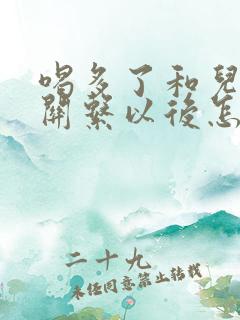 喝多了和兒
關繫以後怎
二十九
未經同意禁止轉載